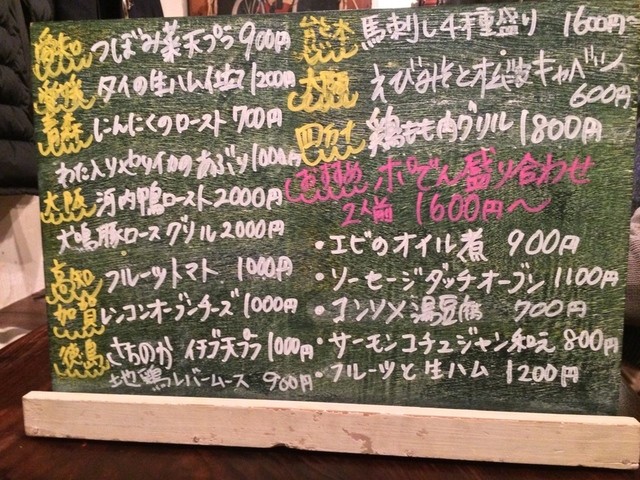 愛知 つぼみ菜天プラ 900円
愛媛 タイの生ハム仕立 1200円
青森 にんにくのロースト 700円
わた入りやりイカのあぶり 1000円
大阪 河内鴨ロースト 2000円
犬鳴豚ロースグリル 2000円
高知 フルーツトマト 1000円
加賀 レンコンオーブンチーズ 1000円
徳島 さちのか イチゴ天プラ 1000円
地鶏レバームース 900円
熊本 馬刺し4種盛り 1600円
大阪 えびみそと松波キャベツ
600円
四万十 鶏もも肉グリル 1800円
おすすめ ポでん盛り合わせ
2人前 1600円〜
・エビのオイル煮 900円
・ソーセージダッチオーブン 1100円
・コンソメ湯豆腐 700円
・サーモンコチュジャン和え 800円
・フルーツと生ハム 1200円